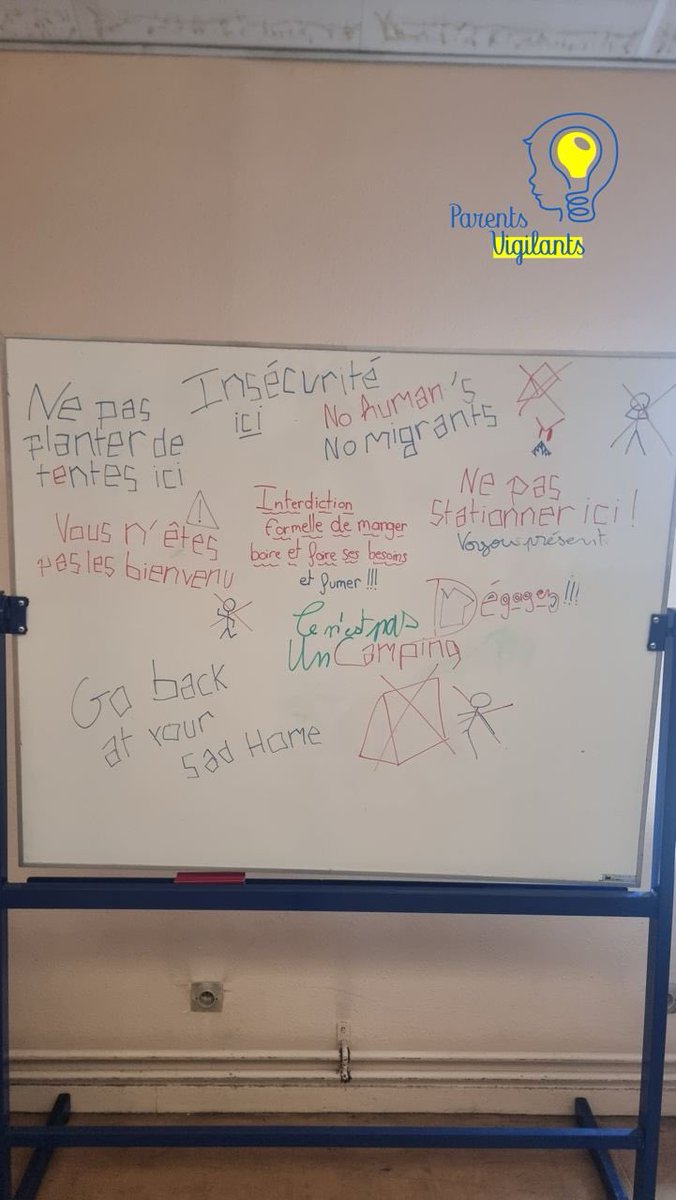 Parents
Vigilants
Insécurité
ici
Ne pas
planter de
tentes ici
No human's
No migrants
Ne pas
Stationner ici !
Vous n'êtes
pas les bienvenu
Interdiction
formelle de manger
boire et faire ses besoins
et fumer !!!
Dégagez !!!
Ce n'est pas
Un Camping
Go back
at your
Sad Home